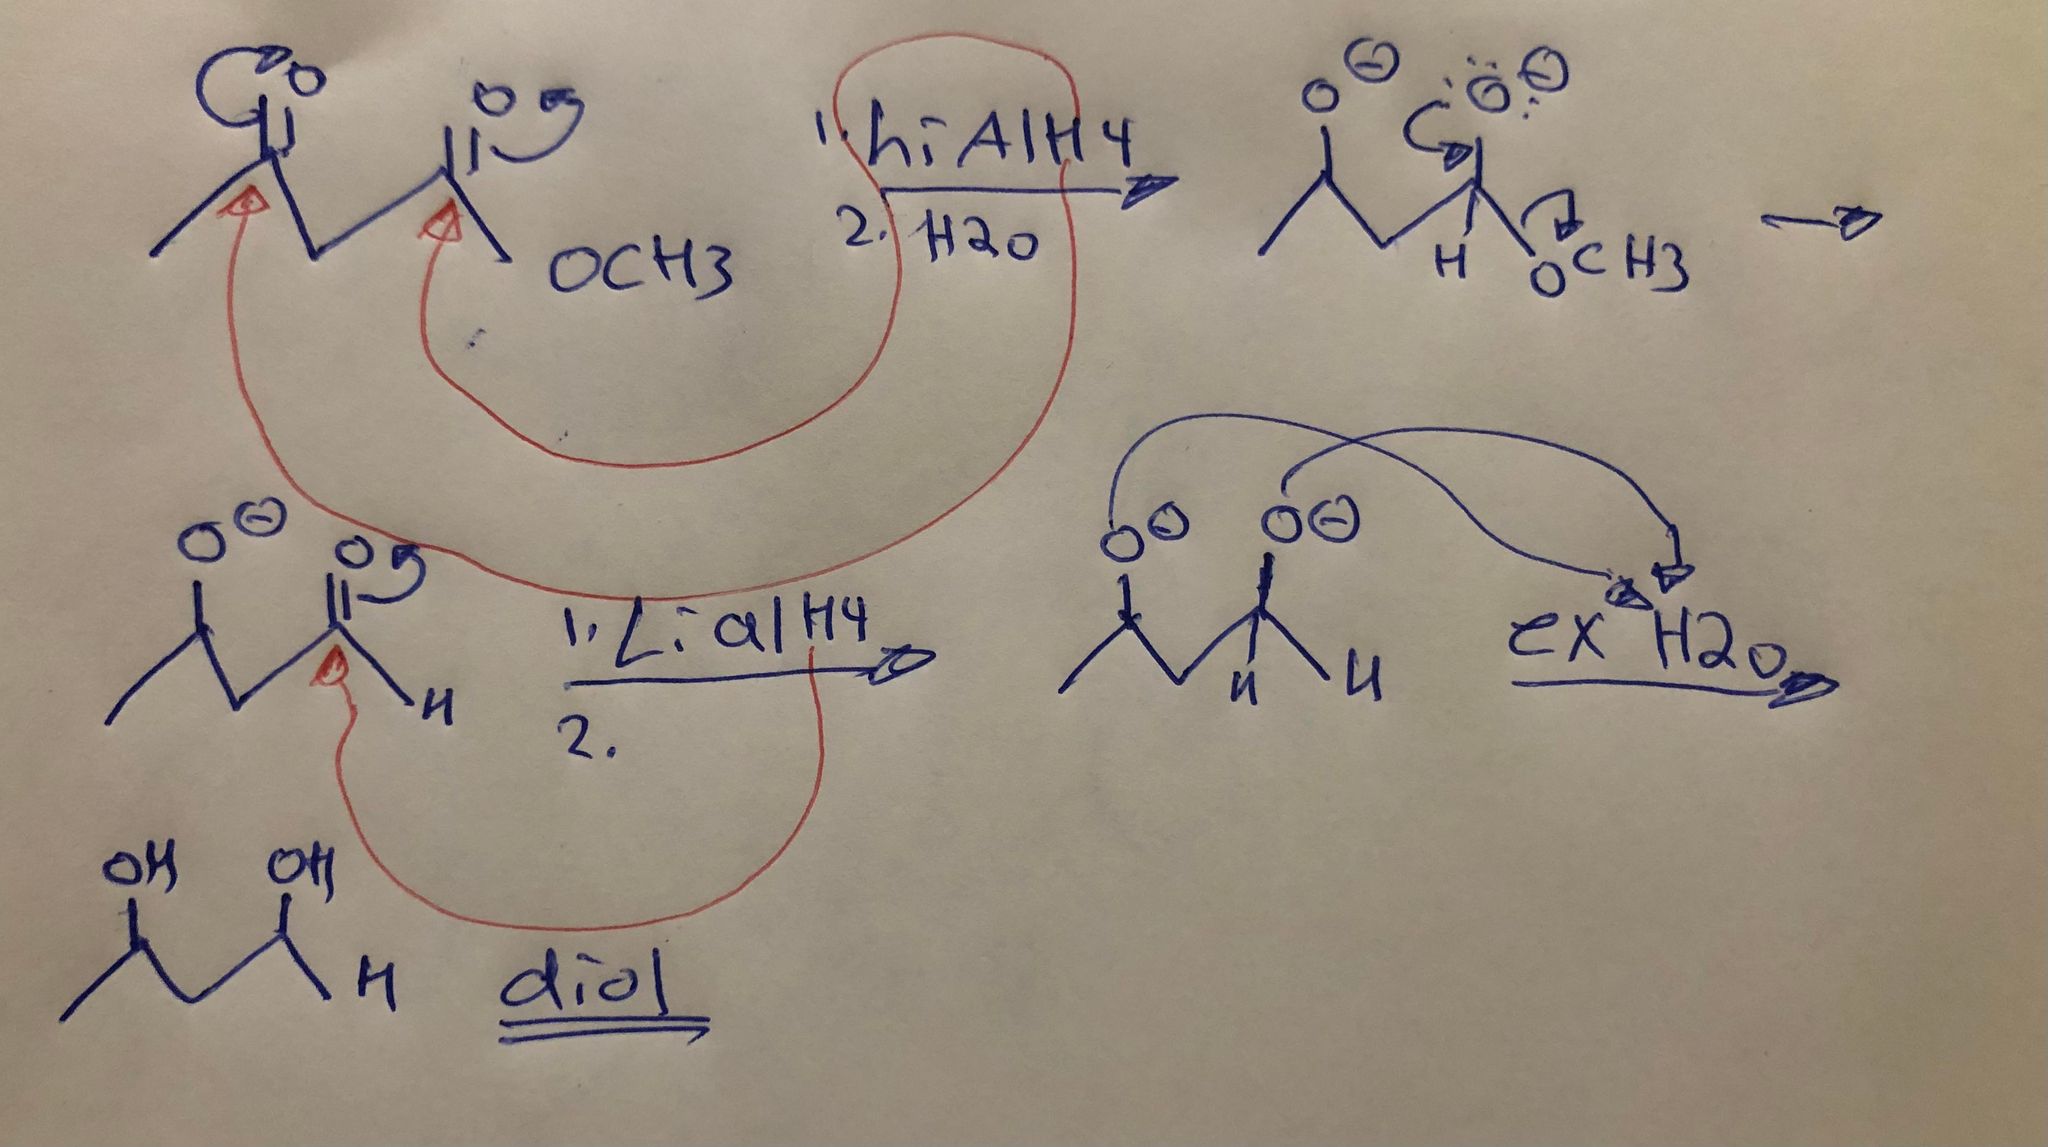 O O OCH3
1. LiAlH4
2. H2O
O⊖ :Ö:⊖ H OCH3
O⊖ O H
1. LialH4
2.
O⊖ O⊖ H H
ex H2O
OH OH H
diol